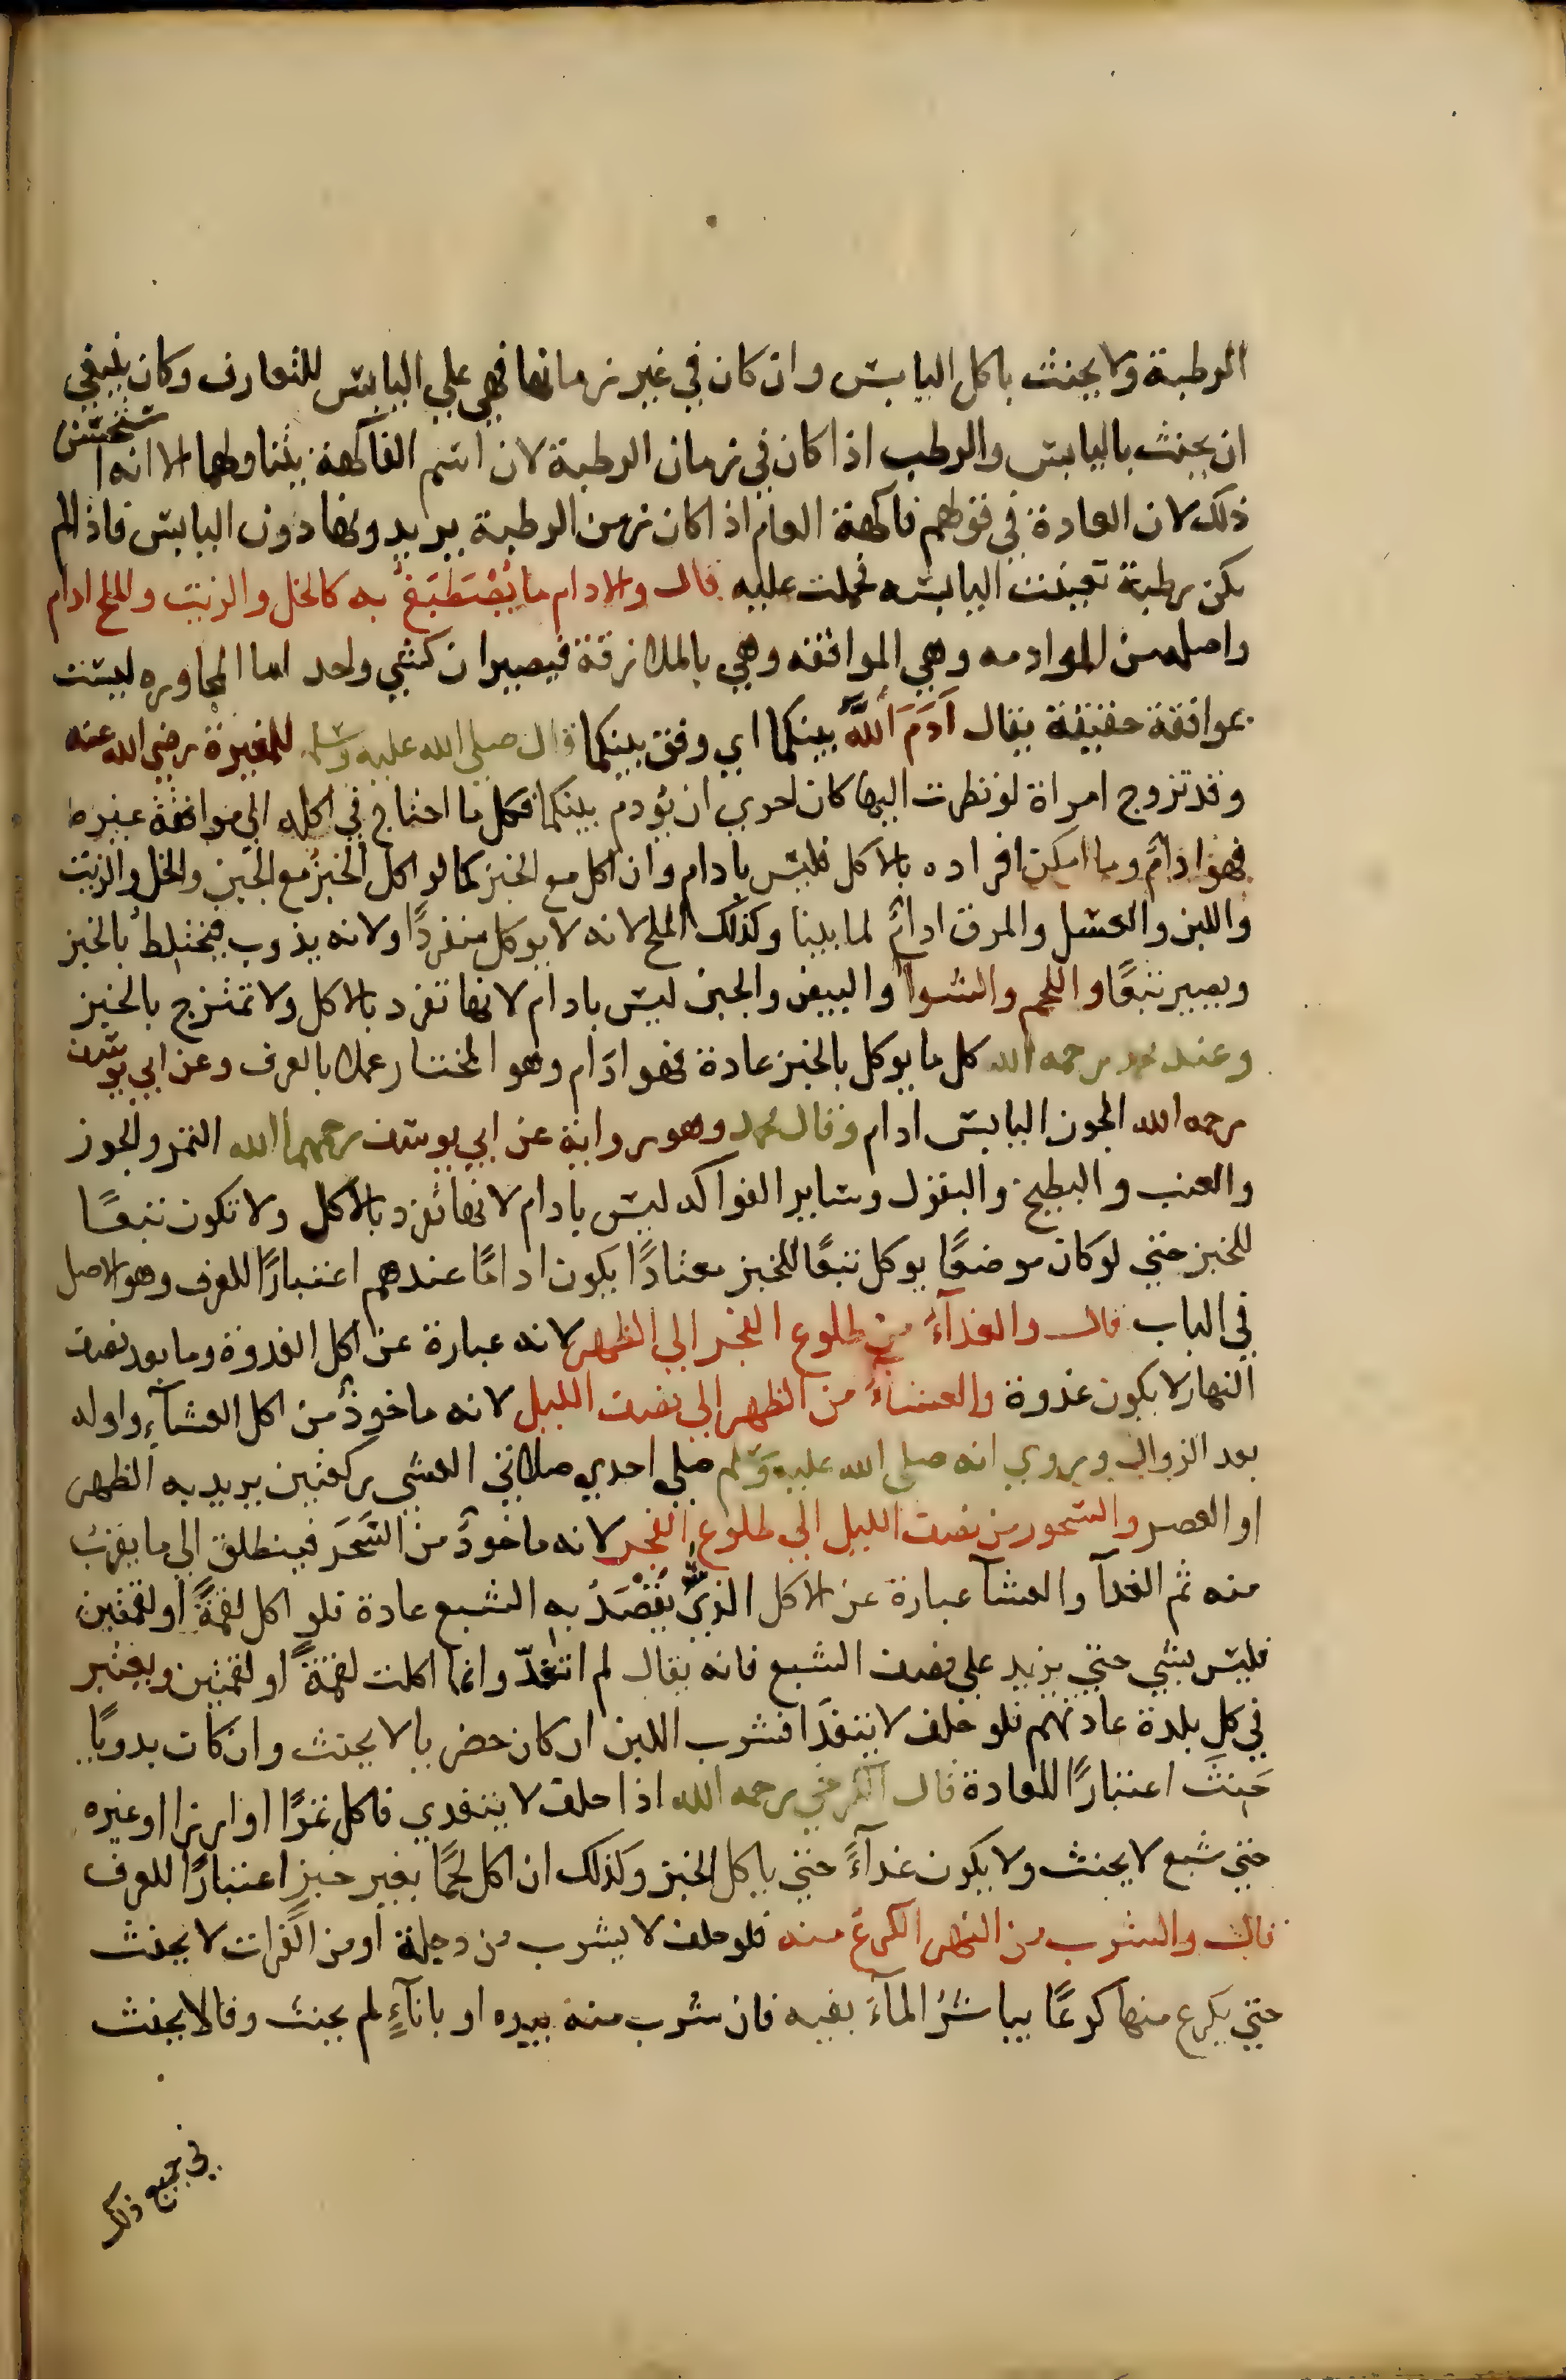 الرطبة ولا يحنث باكل اليابس وان كان في غير زمانها فهي علي اليابس للتعارف وكان ينبغي
ان يحنث باليابس والرطب اذا كان في زمان الرطبة لان اسم الفاكهة يتناولهما الا انه استحسن
ذلك لان العادة في قولهم فاكهة العام اذا كان زمن الرطبة يريدونها دون اليابس فاذا لم
يكن رطبة تعينت اليابسه فحملت عليه قال والادام ما يُصْطَبَغ به كالخل والزيت والملح ادام
واصله من الموادمه وهي الموافقه وهي بالملازقة فيصيران كشي واحد اما المجاوره ليست
بموافقة حقيقة يقال اَدَمَ اَللَّه بينكما اي وفق بينكما قال صلي الله عليه وسلم للمغيرة رضي الله عنه
وقد تزوج امراة لو نظرت اليها كان احري ان يؤدم بينكما فكل ما احتاج في اكله الي موافقة غيره
فهو ادامٌ وما امكن افراده بالاكل فليس بادام وان اكل مع الخبز كما لو اكل الخبز مع الجبن والخل والزيت
واللبن والعسل والمرق ادامٌ لما بينا وكذلك الملح لانه لا يوكل منفردًا ولانه يذوب فيختلط بالخبز
ويصير تبعًا واللحم والشوا والبيض والجبن ليس بادام لانها تفرد بالاكل ولا تمتزج بالخبز
وعند محمد رحمه الله كل ما يوكل بالخبز عادة فهو ادَام وهو المختار عملا بالعرف وعن ابي يوسف
رحمه الله الجوز اليابس ادام وقال محمد وهو رواية عن ابي يوسف رحمهما الله التمر والجوز
والعنب والبطيخ والبقول وساير الفواكه ليس بادام لانها تفرد بالاكل ولا تكون تبعًا
للخبز حتي لو كان موضعًا يوكل تبعًا للخبز معتادًا يكون ادامًا عندهم اعتبارًا للعرف وهو الاصل
في الباب قال والغدآءُ من طلوع الفجر الي الظهر لانه عبارة عن اكل الغدوة وما بعد نصف
النهار لا يكون غدوة والعشاءُ من الظهر الي نصف الليل لانه ماخوذٌ من اكل العشآءِ واوله
بعد الزوال وروي انه صلي الله عليه وسلم صلي احدي صلاتي العشي ركعتين يريد به الظهر
او العصر والسحور من نصف الليل الي طلوع الفجر لانه ماخوذٌ من السَحَر فينطلق الي ما يقربُ
منه ثم الغدآ والعشآ عبارة عن الاكل الذي يُقْصَدُ به الشبع عادة فلو اكل لقمةً او لقمتين
فليس بشي حتي يزيد علي نصف الشبع فانه يقال لم اتغدّ وانما اكلت لقمةً او لقمتين ويعتبر
في كل بلدة عادتهم فلو حلف لا يتغدَا فشرب اللبن ان كان حضريا لا يحنث وان كان بدويًا
حَنِثَ اعتبارًا للعادة قال الكرخي رحمه الله اذا حلف لا يتغدي فاكل تمرًا او ارزا او غيره
حتي شبع لا يحنث ولا يكون غدآءً حتي ياكل الخبز وكذلك ان اكل لحمًا بغير خبزٍ اعتبارًا للعرف
قال والشرب من النهر الكرع منه فلو حلف لا يشرب من دجلة او من الفرات لا يحنث
حتي يكرع منها كرعًا يباشرُ المآءَ بفيه فان شرب منه بيده او بانآءٍ لم يحنث وقالا يحنث
في جميع ذلك